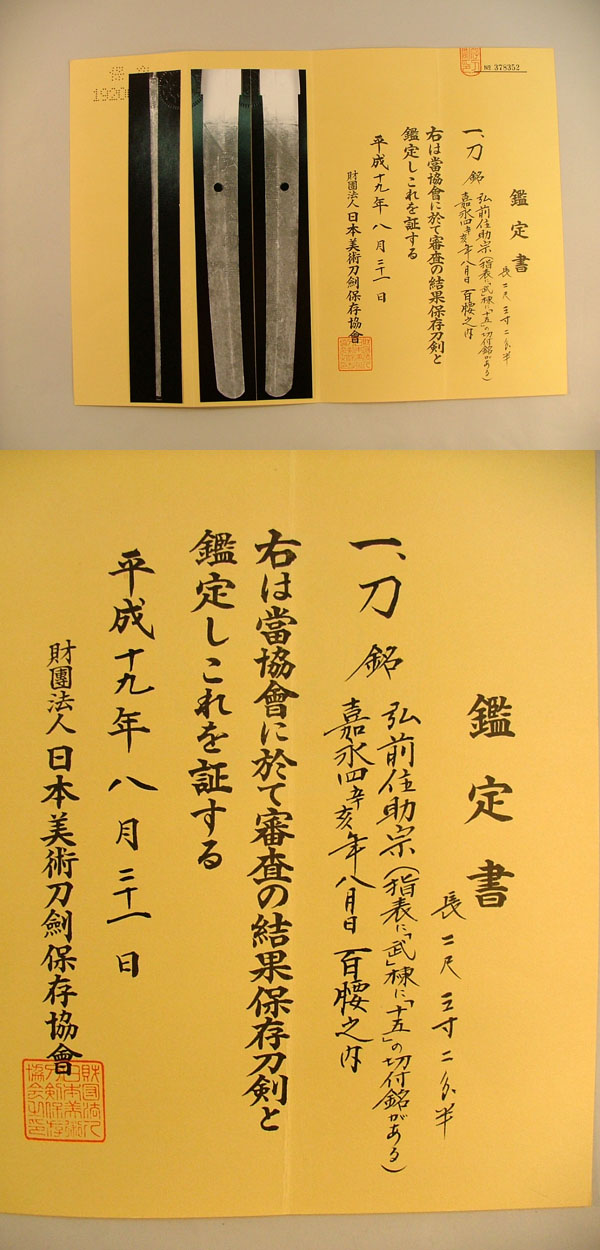 No 378352
鑑定書
一、刀 銘 弘前住助宗（指表に「武」棟に「十五」の切付銘がある）
嘉永四辛亥年八月日 百腰之内
長二尺三寸二分半
右は當協會に於て審査の結果保存刀剣と
鑑定しこれを証する
平成十九年八月二十一日
財團法人日本美術刀劍保存協會
鑑定書
長二尺三寸二分半
一、刀 銘 弘前住助宗（指表に「武」棟に「十五」の切付銘がある）
嘉永四辛亥年八月日 百腰之内
右は當協會に於て審査の結果保存刀剣と
鑑定しこれを証する
平成十九年八月二十一日
財團法人日本美術刀劍保存協會
財団法人日本美術刀剣保存協会之印